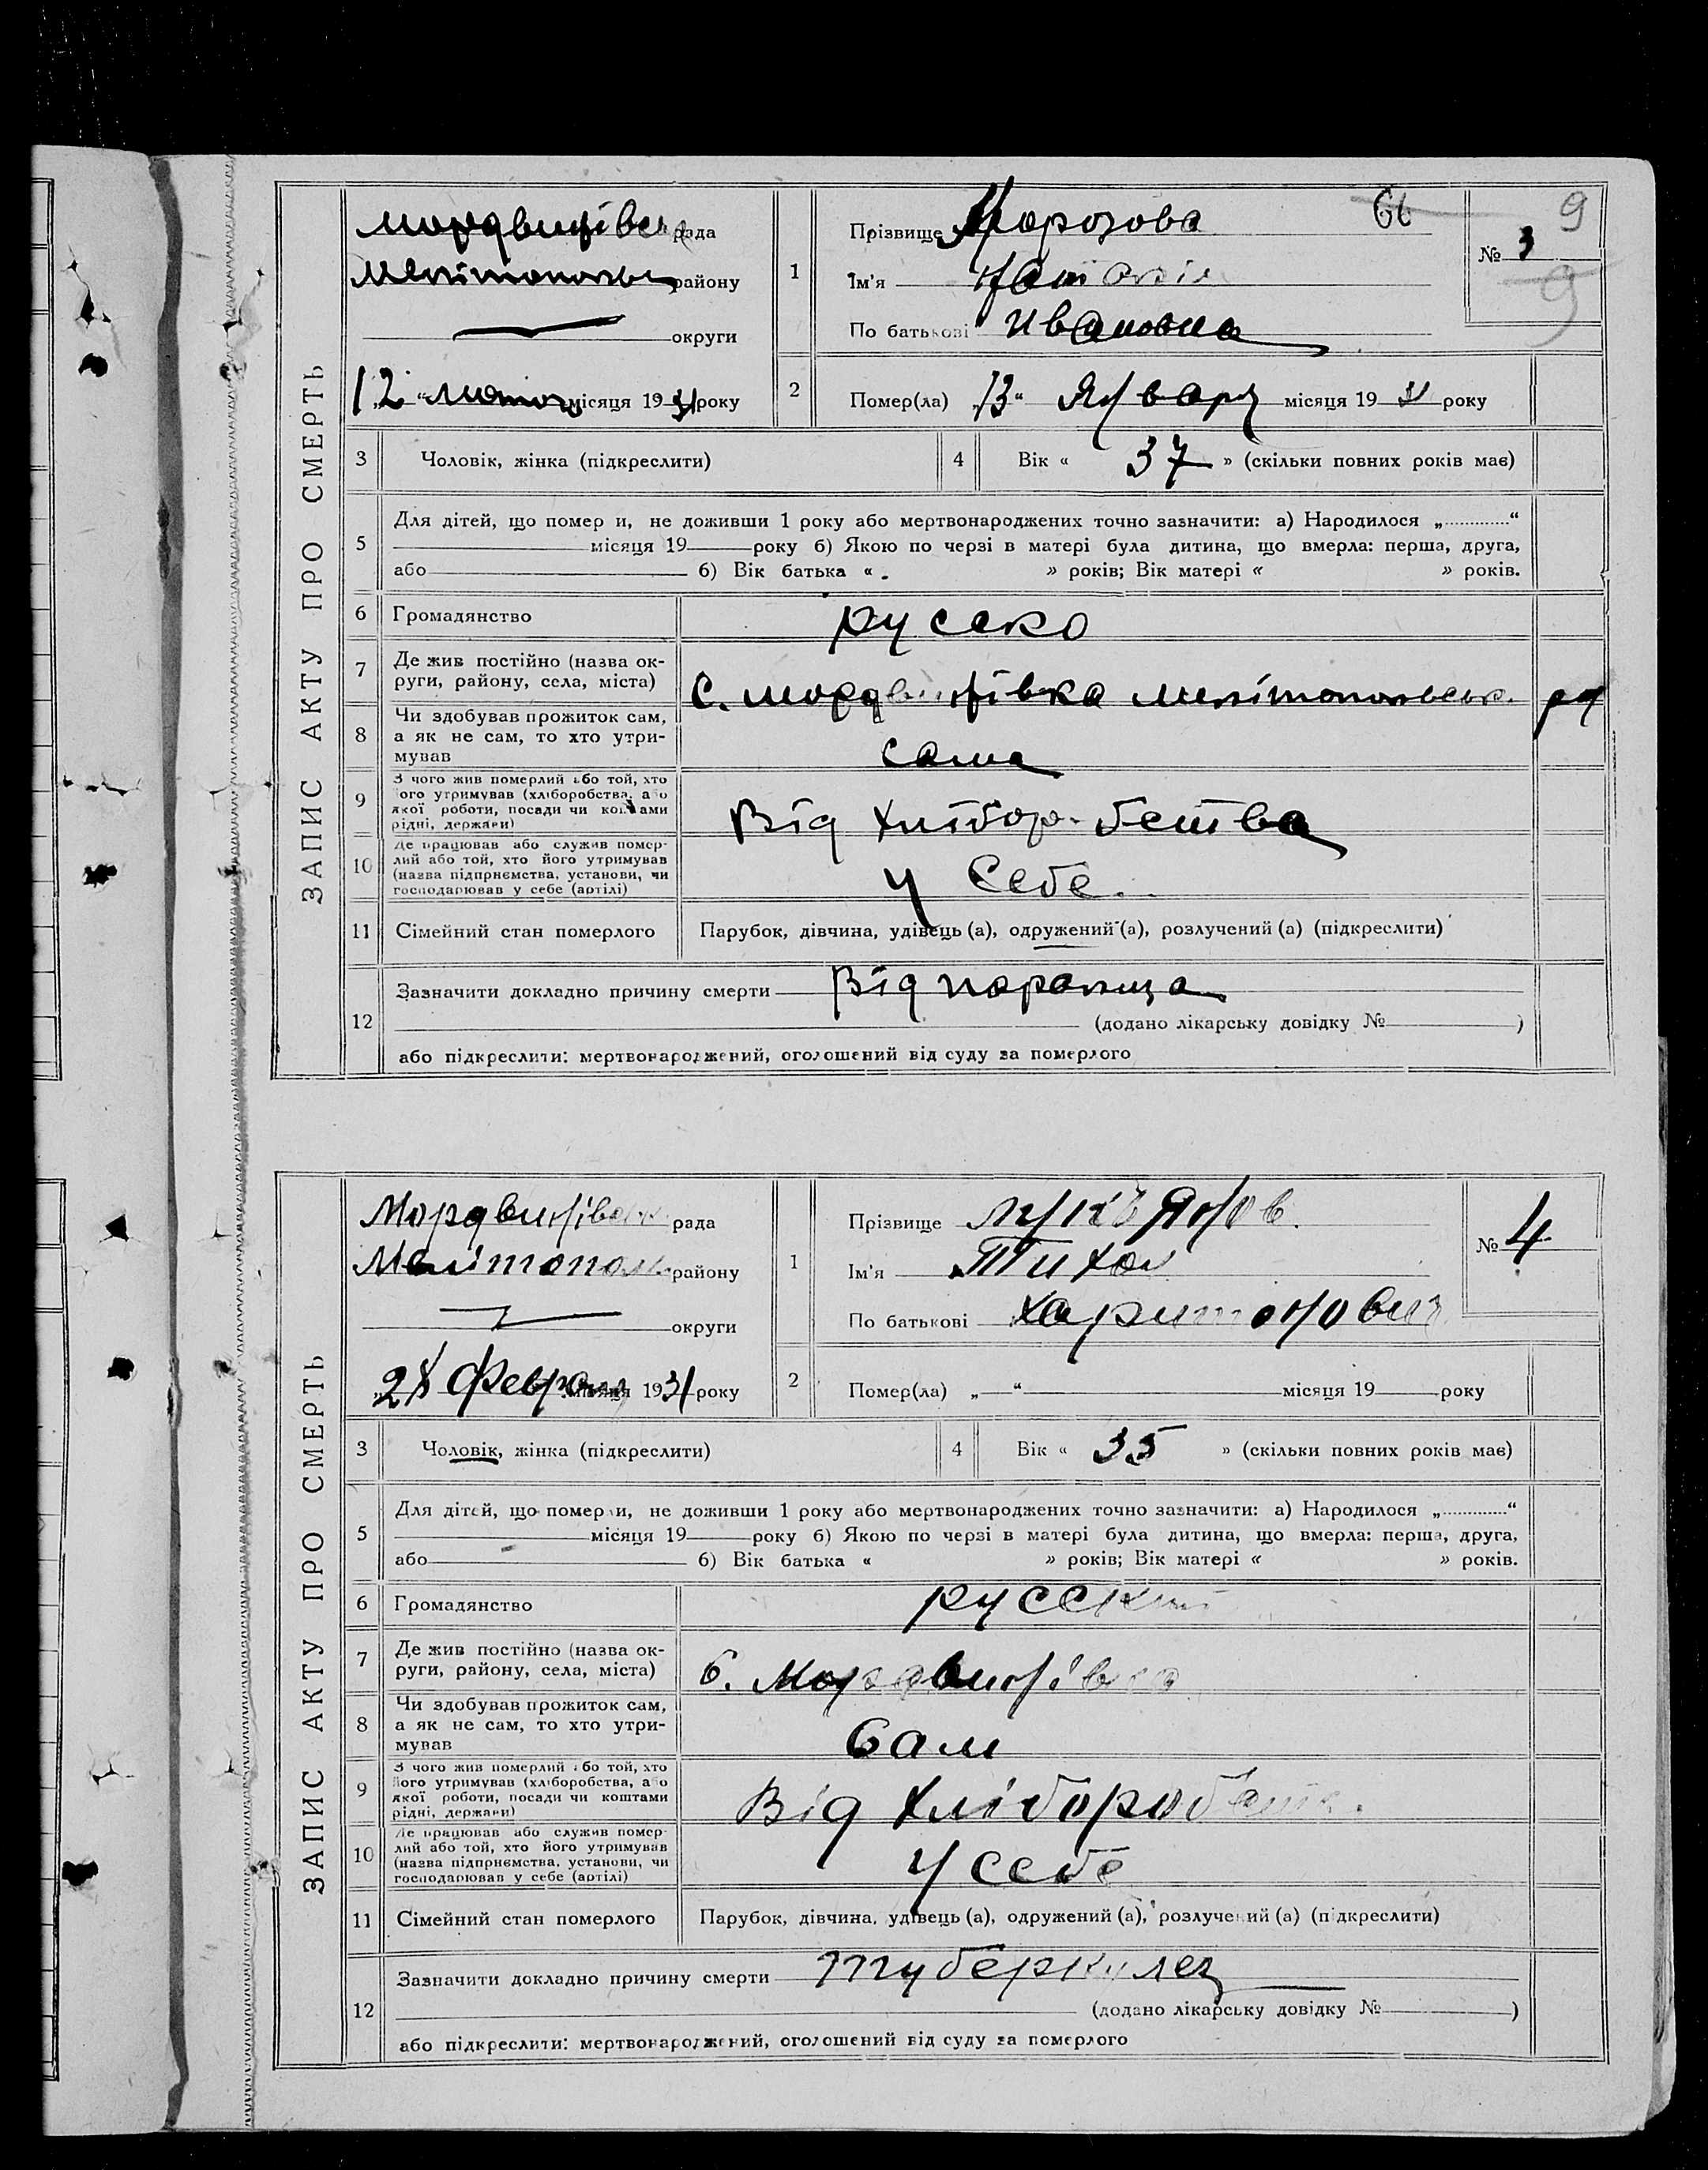 ЗАПИС АКТУ ПРО СМЕРТЬ
рада
Мелітопольськ району
округи
12 “ лютого місяця 1931 року
1
Прізвище Морозова
66
Ім'я
По батькові Ивановна
№ 3
9
9
2
Помер(ла) „13“ Январ місяця 1931 року
3 Чоловік, жінка (підкреслити)
4 Вік « 37 » (скільки повних років має)
5 Для дітей, що помер и, не доживши 1 року або мертвонароджених точно зазначити: а) Народилося „............“
місяця 19 року б) Якою по черзі в матері була дитина, що вмерла: перша, друга,
або б) Вік батька « » років; Вік матері « » років.
6 Громадянство русско
7 Де жив постійно (назва ок-
руги, району, села, міста) с. Мордвинівка Мелітопольськ. р
8 Чи здобував прожиток сам,
а як не сам, то хто утри-
мував сама
9 З чого жив померлий або той, хто
його утримував (хліборобства, або
якої роботи, посади чи коштами
рідні, держави) Від хлібор-бства
10 Де працював або служив помер-
лий або той, хто його утримував
(назва підприємства, установи, чи
господарював у себе (артілі) у себе.
11 Сімейний стан померлого Парубок, дівчина, удівець (а), одружений (а), розлучений (а) (підкреслити)
12 Зазначити докладно причину смерти Від
(додано лікарську довідку № )
або підкреслити: мертвонароджений, оголошений від суду за померлого
ЗАПИС АКТУ ПРО СМЕРТЬ
Мордвинівськ рада
Мелітополь району
округи
28 Феврал місяця 1931 року
1
Прізвище Лукъянов.
Ім'я Тихон
По батькові Харитонович
№ 4
2
Помер(ла) „ “ місяця 19 року
3 Чоловік, жінка (підкреслити)
4 Вік « 35 » (скільки повних років має)
5 Для дітей, що помер и, не доживши 1 року або мертвонароджених точно зазначити: а) Народилося „............“
місяця 19 року б) Якою по черзі в матері була дитина, що вмерла: перша, друга,
або б) Вік батька « » років; Вік матері « » років.
6 Громадянство русский
7 Де жив постійно (назва ок-
руги, району, села, міста) с. Мордвинівка
8 Чи здобував прожиток сам,
а як не сам, то хто утри-
мував сам
9 З чого жив померлий або той, хто
його утримував (хліборобства, або
якої роботи, посади чи коштами
рідні, держави) Від хліборобств.
10 Де працював або служив помер-
лий або той, хто його утримував
(назва підприємства, установи, чи
господарював у себе (артілі) у себе
11 Сімейний стан померлого Парубок, дівчина, удівець (а), одружений (а), розлучений (а) (підкреслити)
12 Зазначити докладно причину смерти туберкулез
(додано лікарську довідку № )
або підкреслити: мертвонароджений, оголошений від суду за померлого